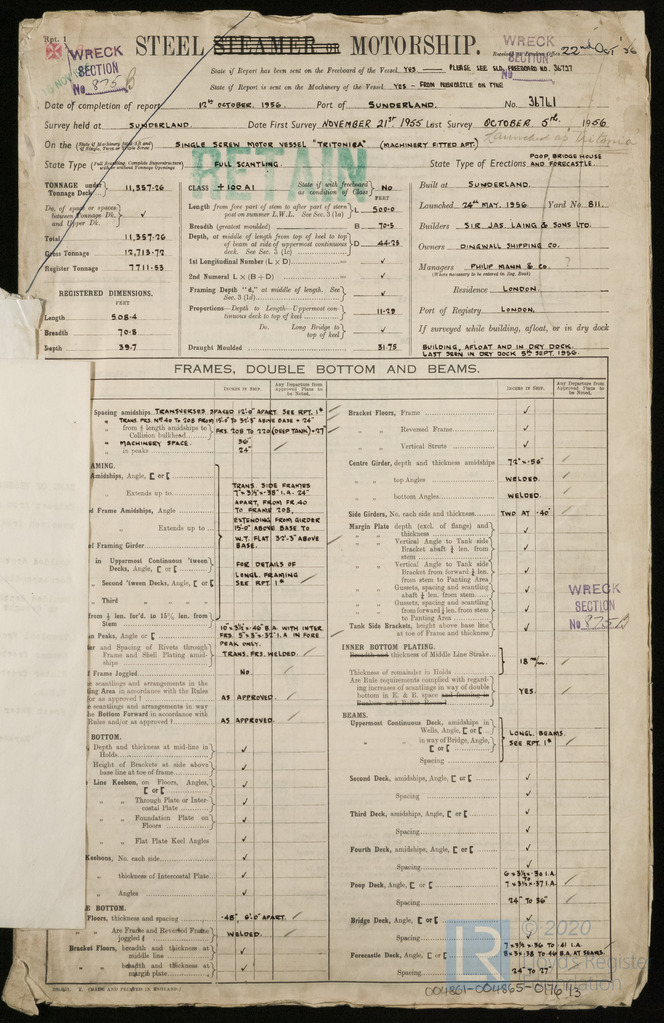 Rpt. 1
STEEL STEAMER OR MOTORSHIP.
WRECK
SECTION
No 875 B
WRECK
SECTION
No
22nd Oct '56
State if Report has been sent on the Freeboard of the Vessel YES — PLEASE SEE SLD. FREEBOARD NO. 36737
State if Report is sent on the Machinery of the Vessel YES - FROM NEWCASTLE ON TYNE
Date of completion of report 12th OCTOBER, 1956. Port of SUNDERLAND. No. 36761
Survey held at SUNDERLAND. Date First Survey NOVEMBER 21st 1955 Last Survey OCTOBER 5th. 1956
Launched as Tritonia
On the SINGLE SCREW MOTOR VESSEL "TRITONICA" (MACHINERY FITTED AFT.)
RETAIN
State Type FULL SCANTLING. State Type of Erections POOP, BRIDGE HOUSE AND FORECASTLE.
TONNAGE under Tonnage Deck 11,357.26
Do. of space or spaces between Tonnage Dk. and Upper Dk. ✓
Total 11,357.26
Gross Tonnage 12,713.72
Register Tonnage 7711.53
REGISTERED DIMENSIONS.
FEET
Length 508.4
Breadth 70.8
Depth 39.7
CLASS +100A1 State if with freeboard as condition of Class No
Length from fore part of stem to after part of stern post on summer L.W.L. See Sec. 3 (1a) L 500.0
Breadth (greatest moulded) B 70.5
Depth, at middle of length from top of keel to top of beam at side of uppermost continuous deck. See Sec. 3 (1c) D 44.25
1st Longitudinal Number (L × D) ✓
2nd Numeral L × (B + D) ✓
Framing Depth "d," at middle of length. See Sec. 3 (1d) ✓
Proportions—Depth to Length—Uppermost continuous deck to top of keel 11.29
Do. Long Bridge to top of keel ✓
Draught Moulded 31.75
Built at SUNDERLAND.
Launched 24th MAY. 1956. Yard No. 811.
Builders SIR JAS. LAING & SONS LTD.
Owners DINGWALL SHIPPING CO.
Managers PHILIP MANN & CO. ?
(Where necessary to be entered in Reg. Book)
Residence LONDON.
Port of Registry LONDON.
If surveyed while building, afloat, or in dry dock
BUILDING, AFLOAT AND IN DRY DOCK.
LAST SEEN IN DRY DOCK 5th SEPT. 1956.
FRAMES, DOUBLE BOTTOM AND BEAMS.
INCHES IN SHIP. Any Departure from Approved Plans to be Noted.
INCHES IN SHIP. Any Departure from Approved Plans to be Noted.
Spacing amidships. TRANSVERSES SPACED 12'-0" APART. SEE RPT. 1*
from ⅗ length amidships to Collision bulkhead FRS. 208 TO 220 (DEEP TANK) = 27"
" MACHINERY SPACE. 36"
" in peaks 24"
AMING.
Amidships, Angle, [ or [
Extends up to
TRANS. SIDE FRAMES
APART, FROM FR. 40
TO FRAME 208,
EXTENDING FROM GIRDER
15'-0" ABOVE BASE TO
W.T. FLAT 32'-3" ABOVE
BASE.
d Frame Amidships, Angle
Extends up to
of Framing Girder
in Uppermost Continuous 'tween Decks, Angle, [ or [
FOR DETAILS OF
LONGL. FRAMING
SEE RPT. 1*
" Second 'tween Decks, Angle, [ or [
" Third "
from ⅗ len. for'd. to 15% len. from Stem
n Peaks, Angle or [
FRS. 5"×3"×.32" I.A. IN FORE
PEAK ONLY.
ter and Spacing of Rivets through Frame and Shell Plating amidships TRANS. FRS. WELDED.
f Frame Joggled No
e scantlings and arrangements in the
ing Area in accordance with the Rules
or as approved? AS APPROVED.
e scantlings and arrangements in way
he Bottom Forward in accordance with
Rules and/or as approved? AS APPROVED.
BOTTOM.
Depth and thickness at mid-line in Holds ✓
Height of Brackets at side above base line at toe of frame ✓
e Line Keelson, on Floors, Angles, [ or [ ✓
" " Through Plate or Intercostal Plate ✓
" " Foundation Plate on Floors ✓
" " Flat Plate Keel Angles ✓
Keelsons, No. each side ✓
" thickness of Intercostal Plate ✓
" Angles ✓
E BOTTOM.
Floors, thickness and spacing .48" 6'-0" APART.
" Are Frame and Reversed Frame joggled? WELDED.
Bracket Floors, breadth and thickness at middle line ✓
" breadth and thickness at margin plate ✓
Bracket Floors, Frame ✓
" " Reversed Frame ✓
" " Vertical Struts ✓
Centre Girder, depth and thickness amidships 72" × .56"
" " top Angles WELDED.
" " bottom Angles WELDED.
Side Girders, No. each side and thickness TWO AT .40"
Margin Plate depth (excl. of flange) and thickness ✓
" " Vertical Angle to Tank side Bracket abaft ¼ len. from stem ✓
" " Vertical Angle to Tank side Bracket from forward ¼ len. from stem to Panting Area ✓
" " Gussets, spacing and scantling abaft ¼ len. from stem ✓
" " Gussets, spacing and scantling from forward ¼ len. from stem to Panting Area ✓
Tank Side Brackets, height above base line at toe of Frame and thickness ✓
WRECK
SECTION
No 875 B
INNER BOTTOM PLATING.
Breadth and thickness of Middle Line Strake
18 m/m.
Thickness of remainder in Holds
Are Rule requirements complied with regarding increases of scantlings in way of double bottom in E. & B. space and framing in Bunkers and Boiler Room? YES.
BEAMS.
Uppermost Continuous Deck, amidships in Wells, Angle, [ or [
" in way of Bridge, Angle, [ or [
LONGL. BEAMS.
SEE RPT. 1*
Spacing
Second Deck, amidships, Angle, [ or [ ✓
Spacing ✓
Third Deck, amidships, Angle, [ or [ ✓
Spacing ✓
Fourth Deck, amidships, Angle, [ or [ ✓
Spacing ✓
Poop Deck, Angle, [ or [ 6 × 3½ × .30 I.A. TO 7 × 3½ × .37 I.A.
Spacing 24" TO 36"
Bridge Deck, Angle, [ or [ ✓
Spacing ✓
Forecastle Deck, Angle, [ or [ 7 × 3½ × .36 TO .41 I.A.
Spacing 24" TO 27"
(MADE AND PRINTED IN ENGLAND.)
LR © 2020
Lloyd's Register
Foundation
004861-004865-0176 1/3